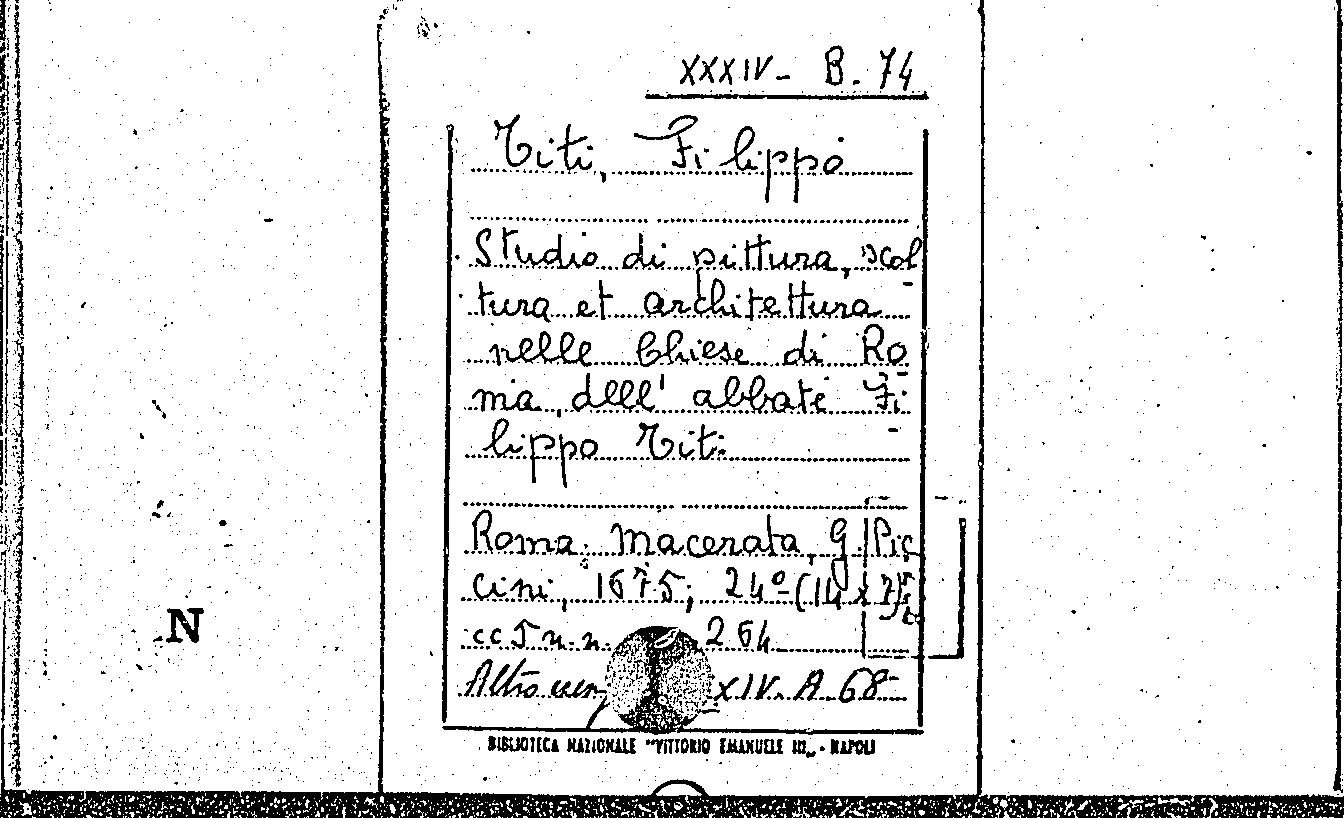 XXXIV - B. 74
Titi, Filippo
Studio di pittura, scol
tura et architettura
nelle Chiese di Ro
ma dell' abbate Fi
lippo Titi.
Roma. Macerata, G. Pic
cini, 1675; 24º (14 x 7);
cc 5 n.n. 264
Altro XIV. A 68
BIBLIOTECA NAZIONALE "VITTORIO EMANUELE III" - NAPOLI
N